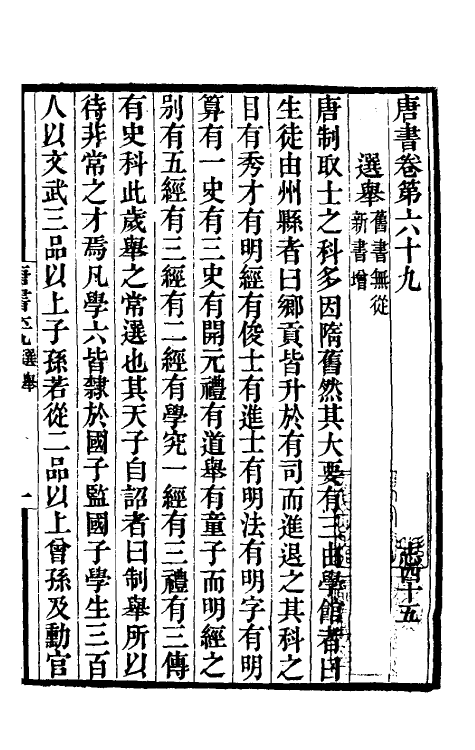 唐書卷第六十九
志四十五
選舉舊書無從
新書增
唐制取士之科多因隋舊然其大要有三由學館者曰
生徒由州縣者曰鄉貢皆升於有司而進退之其科之
目有秀才有明經有俊士有進士有明法有明字有明
算有一史有三史有開元禮有道舉有童子而明經之
別有五經有三經有二經有學究一經有三禮有三傳
有史科此歲舉之常選也其天子自詔者曰制舉所以
待非常之才焉凡學六皆隸於國子監國子學生三百
人以文武三品以上子孫若從二品以上曾孫及勳官
選舉
一